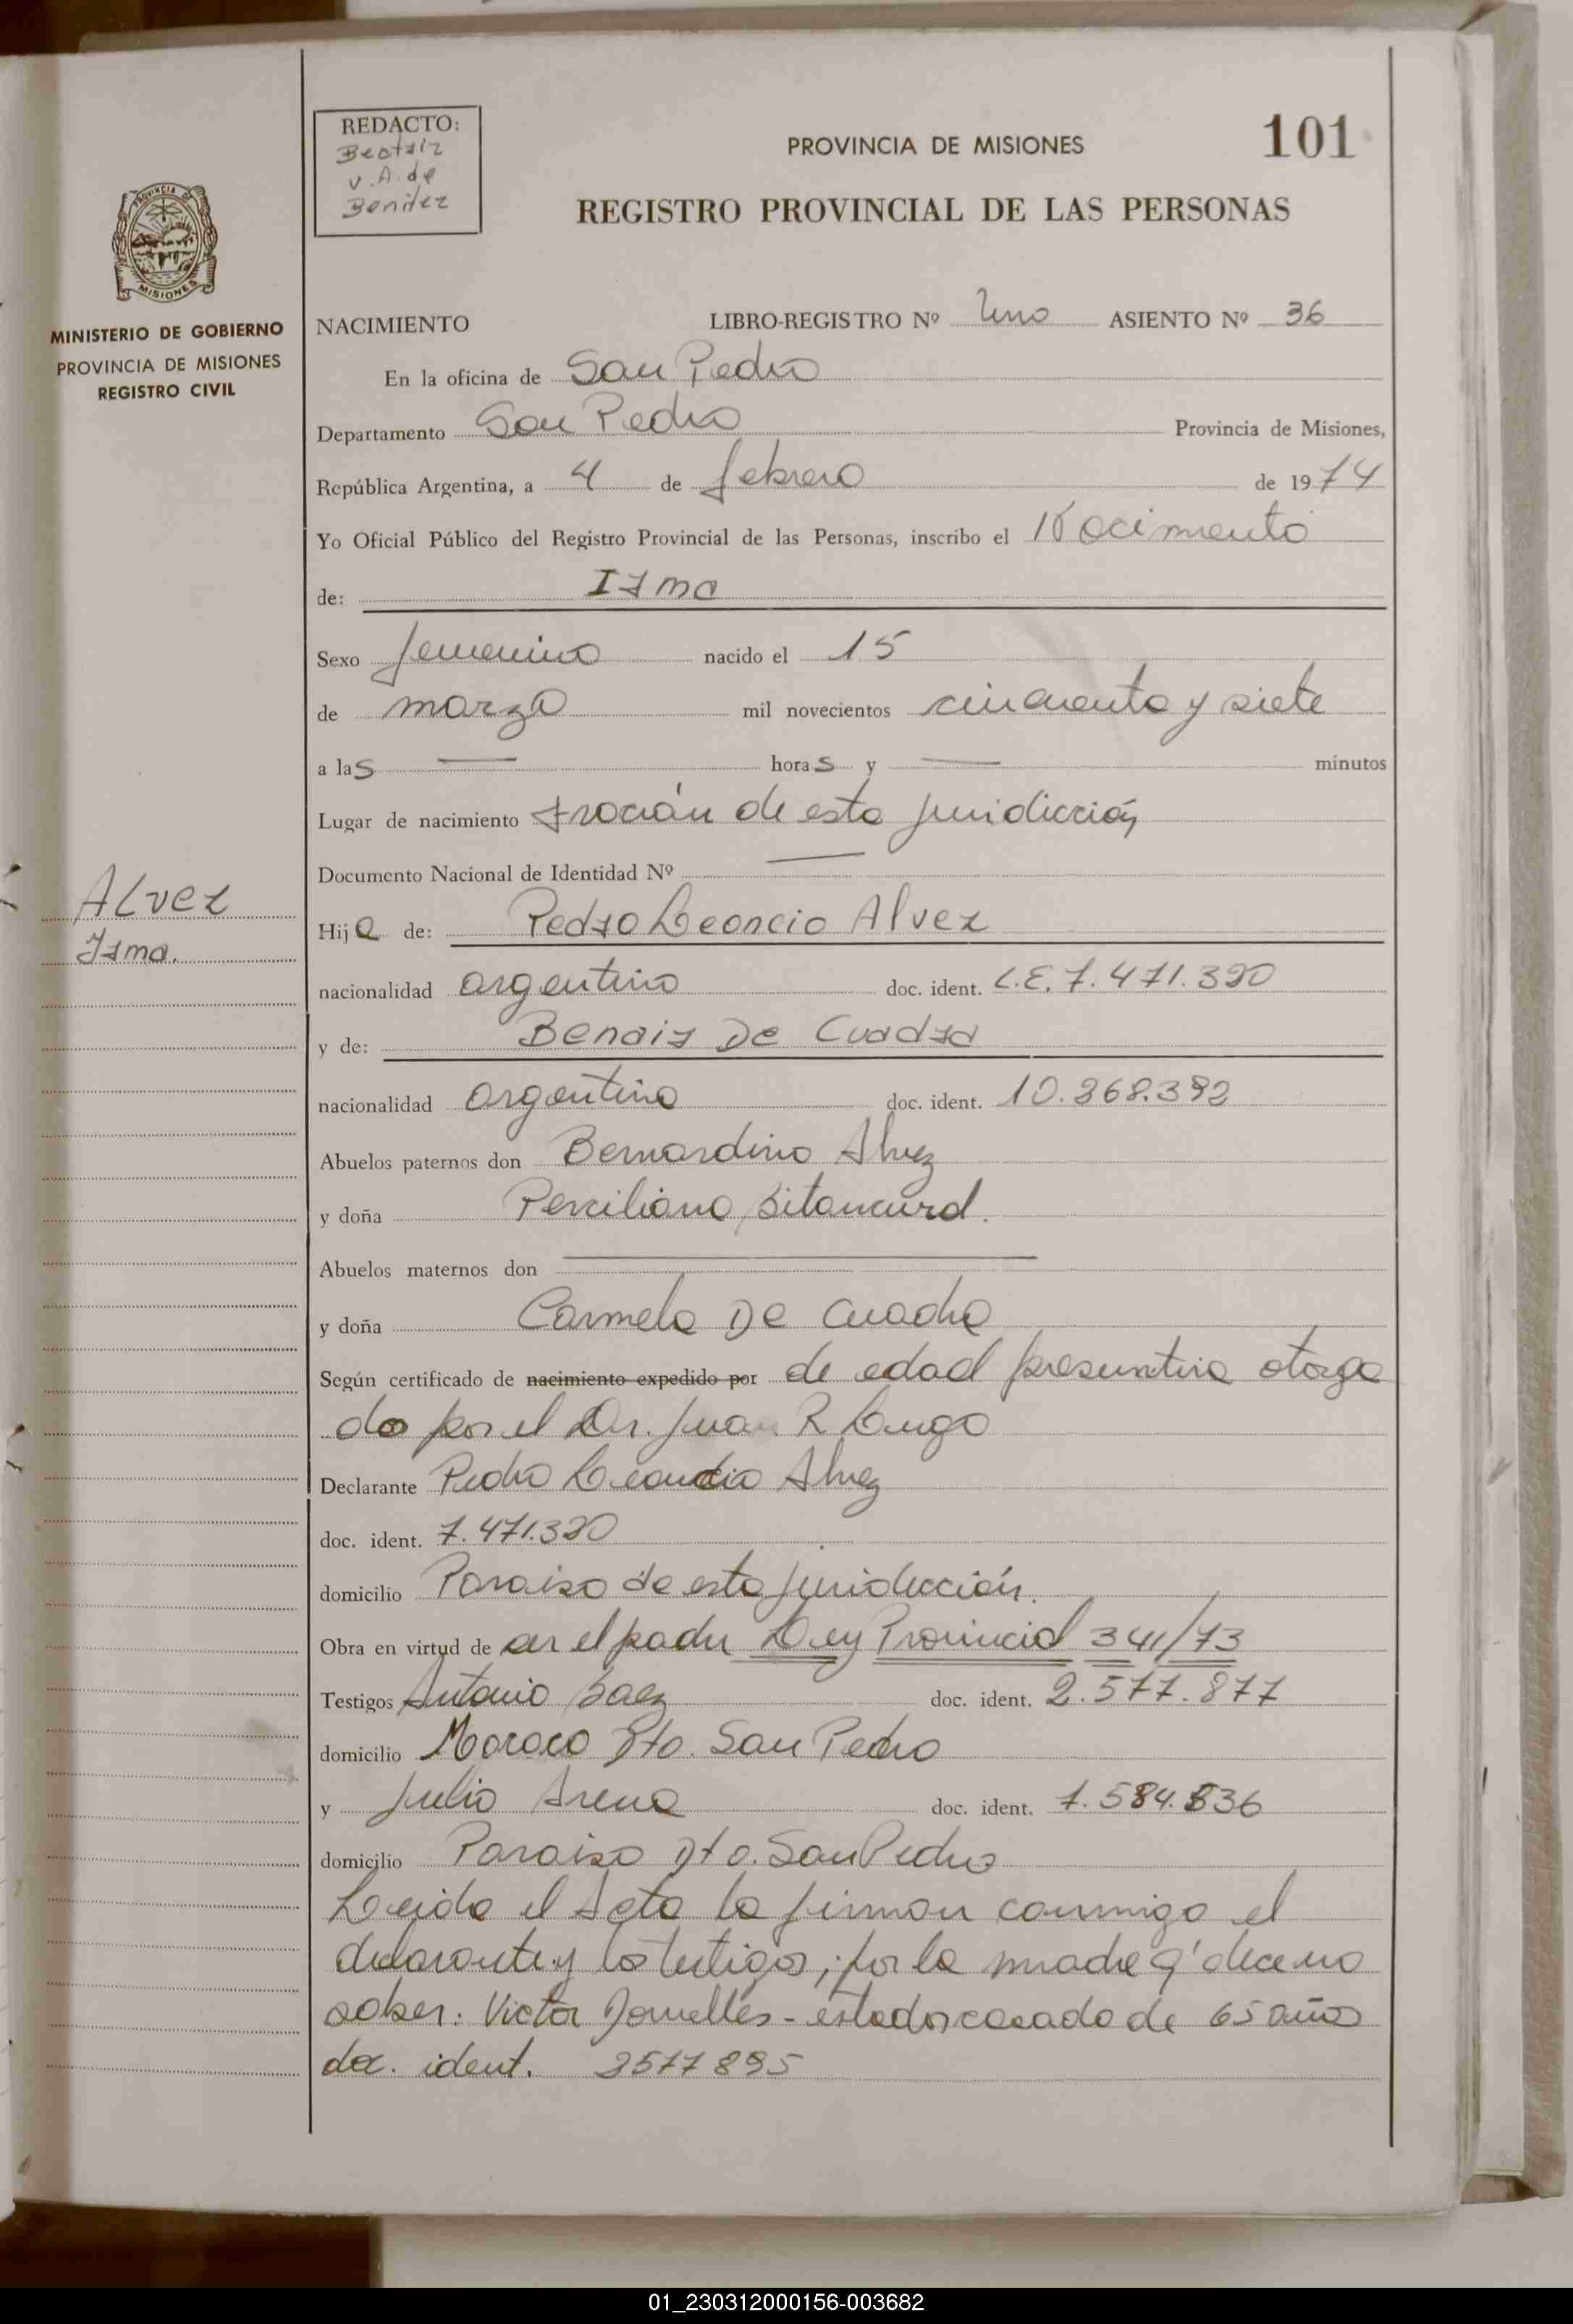 REDACTO:
Beatriz
v. A. de
Benitez
PROVINCIA DE MISIONES
101
REGISTRO PROVINCIAL DE LAS PERSONAS
PROVINCIA DE
MISIONES
MINISTERIO DE GOBIERNO
PROVINCIA DE MISIONES
REGISTRO CIVIL
NACIMIENTO LIBRO-REGISTRO Nº Uno ASIENTO Nº 36
En la oficina de San Pedro
Departamento San Pedro Provincia de Misiones,
República Argentina, a 4 de febrero de 1974
Yo Oficial Público del Registro Provincial de las Personas, inscribo el Nacimiento
de: Irma
Sexo femenino nacido el 15
de marzo mil novecientos cincuenta y siete
a las — horas y — minutos
Lugar de nacimiento de esta juridicción
Documento Nacional de Identidad Nº —
ALvez
Irma.
Hija de: Pedro Leoncio Alvez
nacionalidad argentino doc. ident. L.E. 7.471.390
y de: Benair De Cuadra
nacionalidad argentina doc. ident. 10.868.392
Abuelos paternos don Bernardino Alvez
y doña Perciliana Bitancurd.
Abuelos maternos don —
y doña Carmela De Cuadra
Según certificado de nacimiento expedido por de edad presuntiva otorga
do por el Dr. Juan R Lugo
Declarante Pedro Leoncio Alvez
doc. ident. 7.471.390
domicilio Paraiso de esta juridicción.
Obra en virtud de ser el padre Ley Provincial 341/73
Testigos Antonio Baez doc. ident. 2.577.877
domicilio Moroco Dto. San Pedro
y Julio Arena doc. ident. 7.584.536
domicilio Paraiso Dto. San Pedro
Leida el Acta la firman conmigo el
declarante y los testigos, por la madre q' dice no
saber: Victor Dornelles - estado casado de 65 años
doc. ident. 2577895
01_230312000156-003682